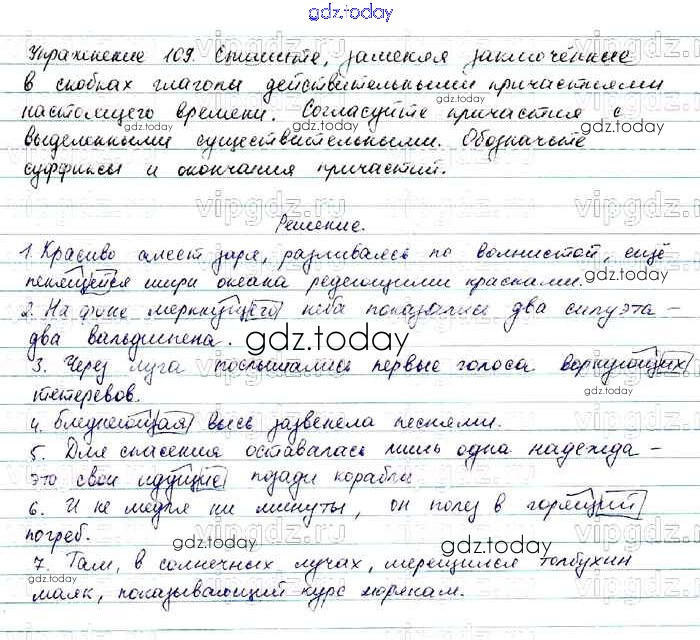 gdz.today
Упражнение 109. Спишите, заменяя заключённые
в скобках глаголы действительными причастиями
настоящего времени. Согласуйте причастия с
выделенными существительными. Обозначьте
суффиксы и окончания причастий.
Решение.
1. Красиво алеет заря, разливаясь по волнистой, ещё
пенящейся шири океана редеющими красками.
2. На фоне меркнущего неба показались два силуэта –
два вальдшнепа.
3. Через луга послышались первые голоса воркующих
тетеревов.
4. Бледнеющая высь зазвенела песнями.
5. Для спасения оставалась лишь одна надежда –
это свои идущие позади корабли
6. И не медля ни минуты, он полез в горящий
погреб.
7. Там, в солнечных лучах, мерещился Толбухин
маяк, показывающий курс морякам.